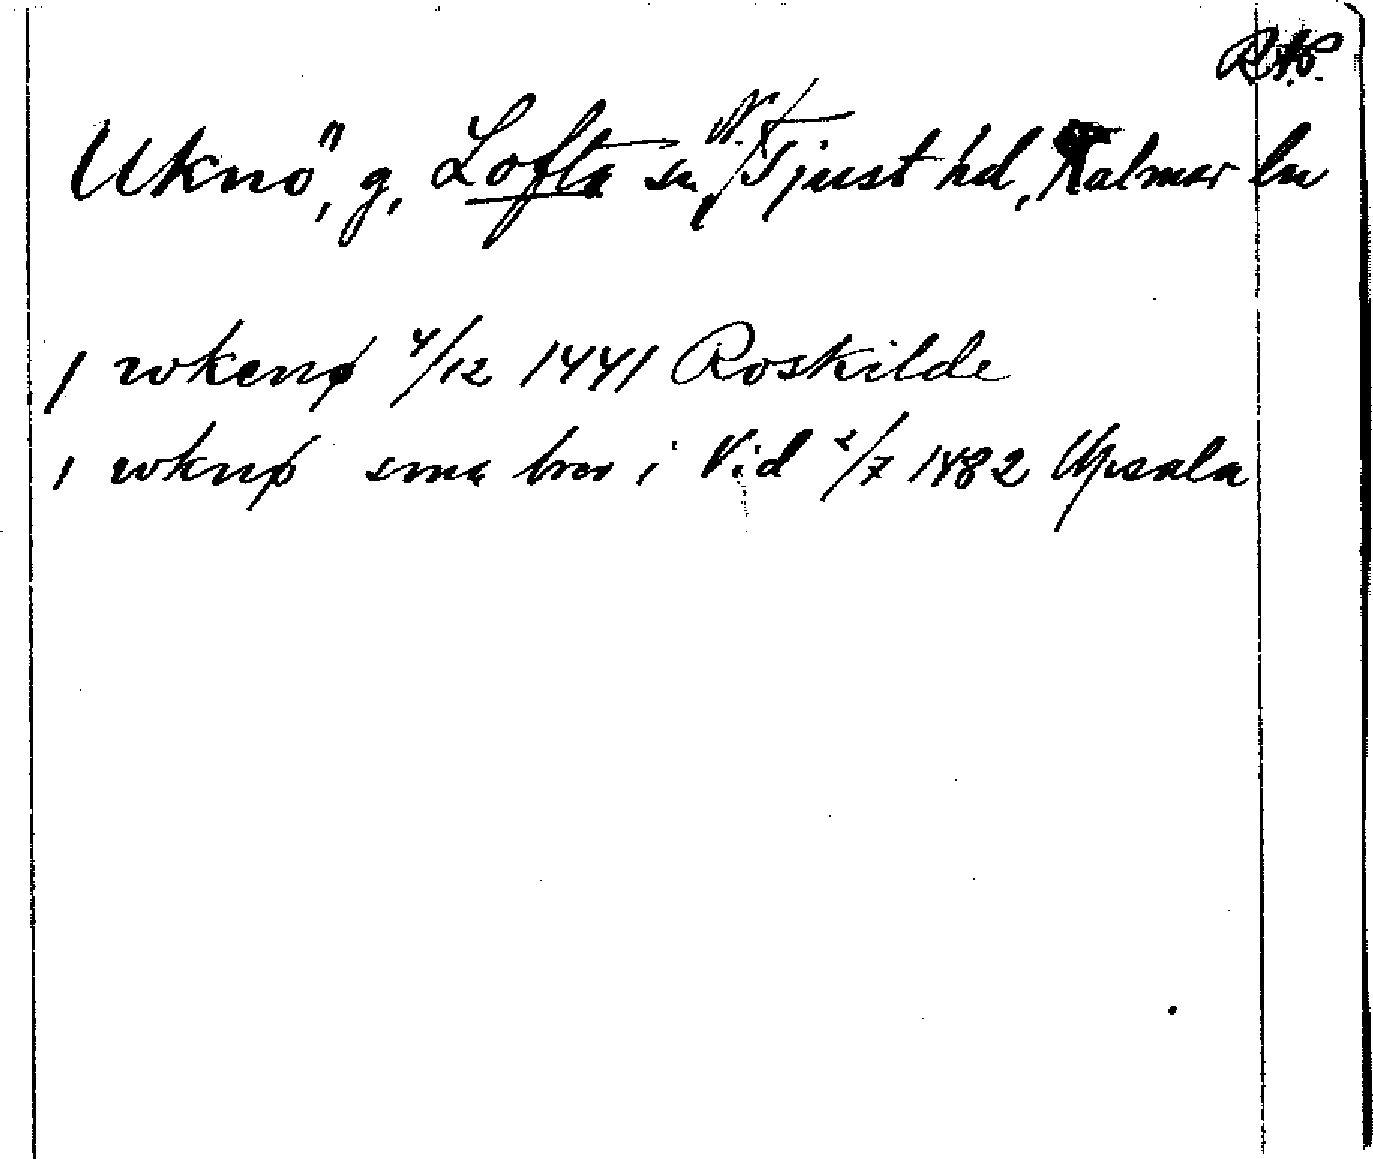 RAP.
Uknö, g, Lofta sn, N. Tjust hd, Kalmar ln
I wkenø 4/12 1441 Roskilde
I wknø sma brev i Vid 2/7 1482 Upsala